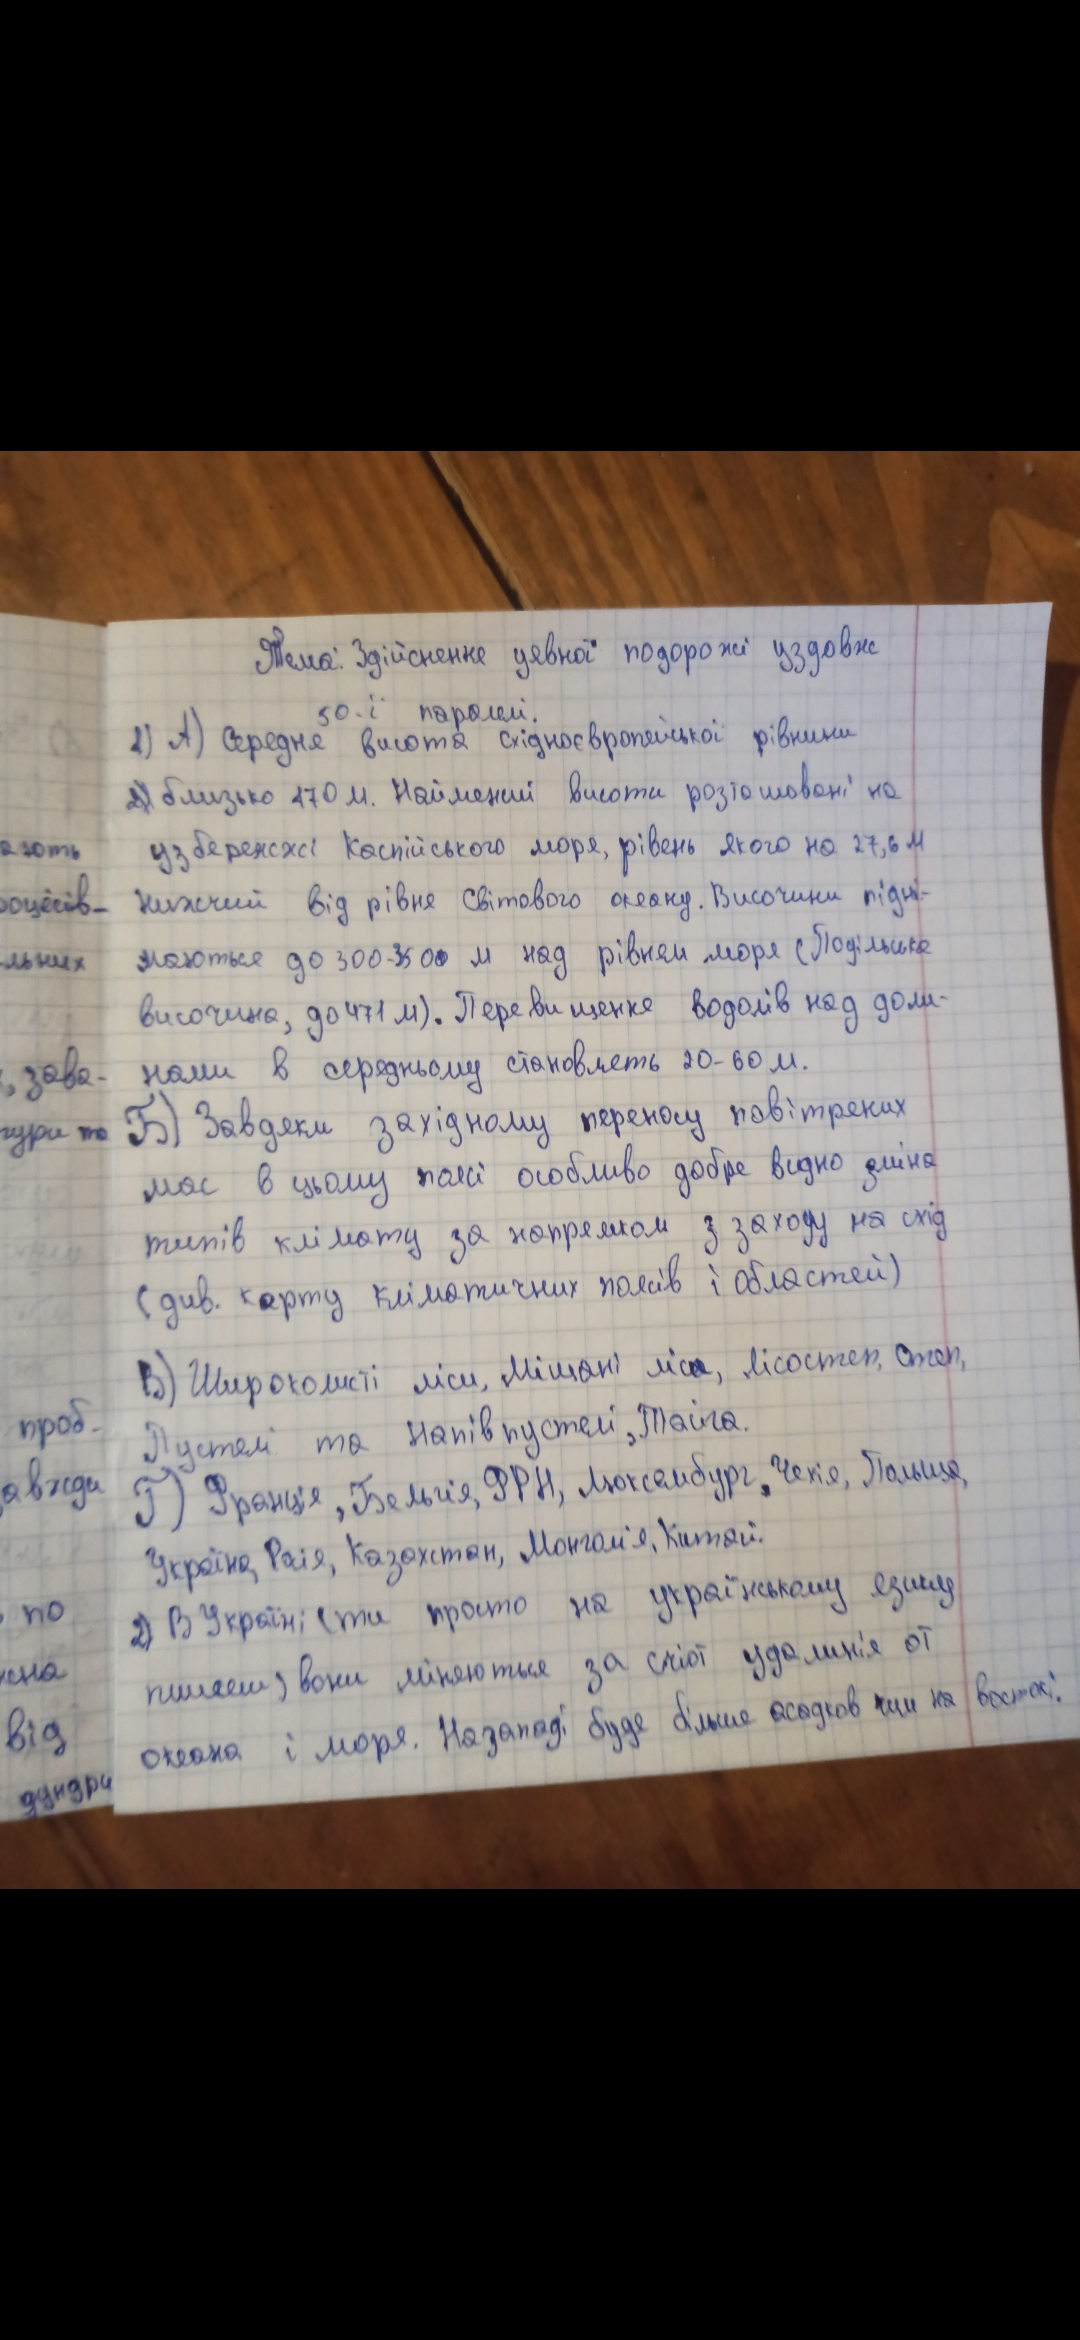 Тема: Здійснення уявної подорожі уздовж
50-ї паралелі.
1) А) Середня висота східноєвропейської рівнини
близько 170 м. Найменші висоти розташовані на
ають узбережжі Каспійського моря, рівень якого на 27,6 м
роцесів- нижчий від рівня Світового океану. Височини підні-
льних маються до 300-3500 м над рівнем моря (Подільська
височина, до 471 м). Перевищення водолів над доли-
, зава- нами в середньому становлять 20-60 м.
тури та Б) Завдяки західному переносу повітряних
мас в цьому поясі особливо добре видно зміна
типів клімату за напрямком з заходу на схід
(див. карту кліматичних поясів і областей)
В) Широколисті ліси, Мішані ліса, лісостеп, степ,
проб- Пустелі та Напівпустелі, Тайга.
авжди Г) Франція, Бельгія, ФРН, Люксембург, Чехія, Польща,
Україна, Росія, Казахстан, Монголія, Китай.
по 2) В Україні (ти просто на українському язику
жна пишеш) вони міняються за счіот удалинія от
від океана і моря. На западі буде більше осадков чим на востокі.
дундри